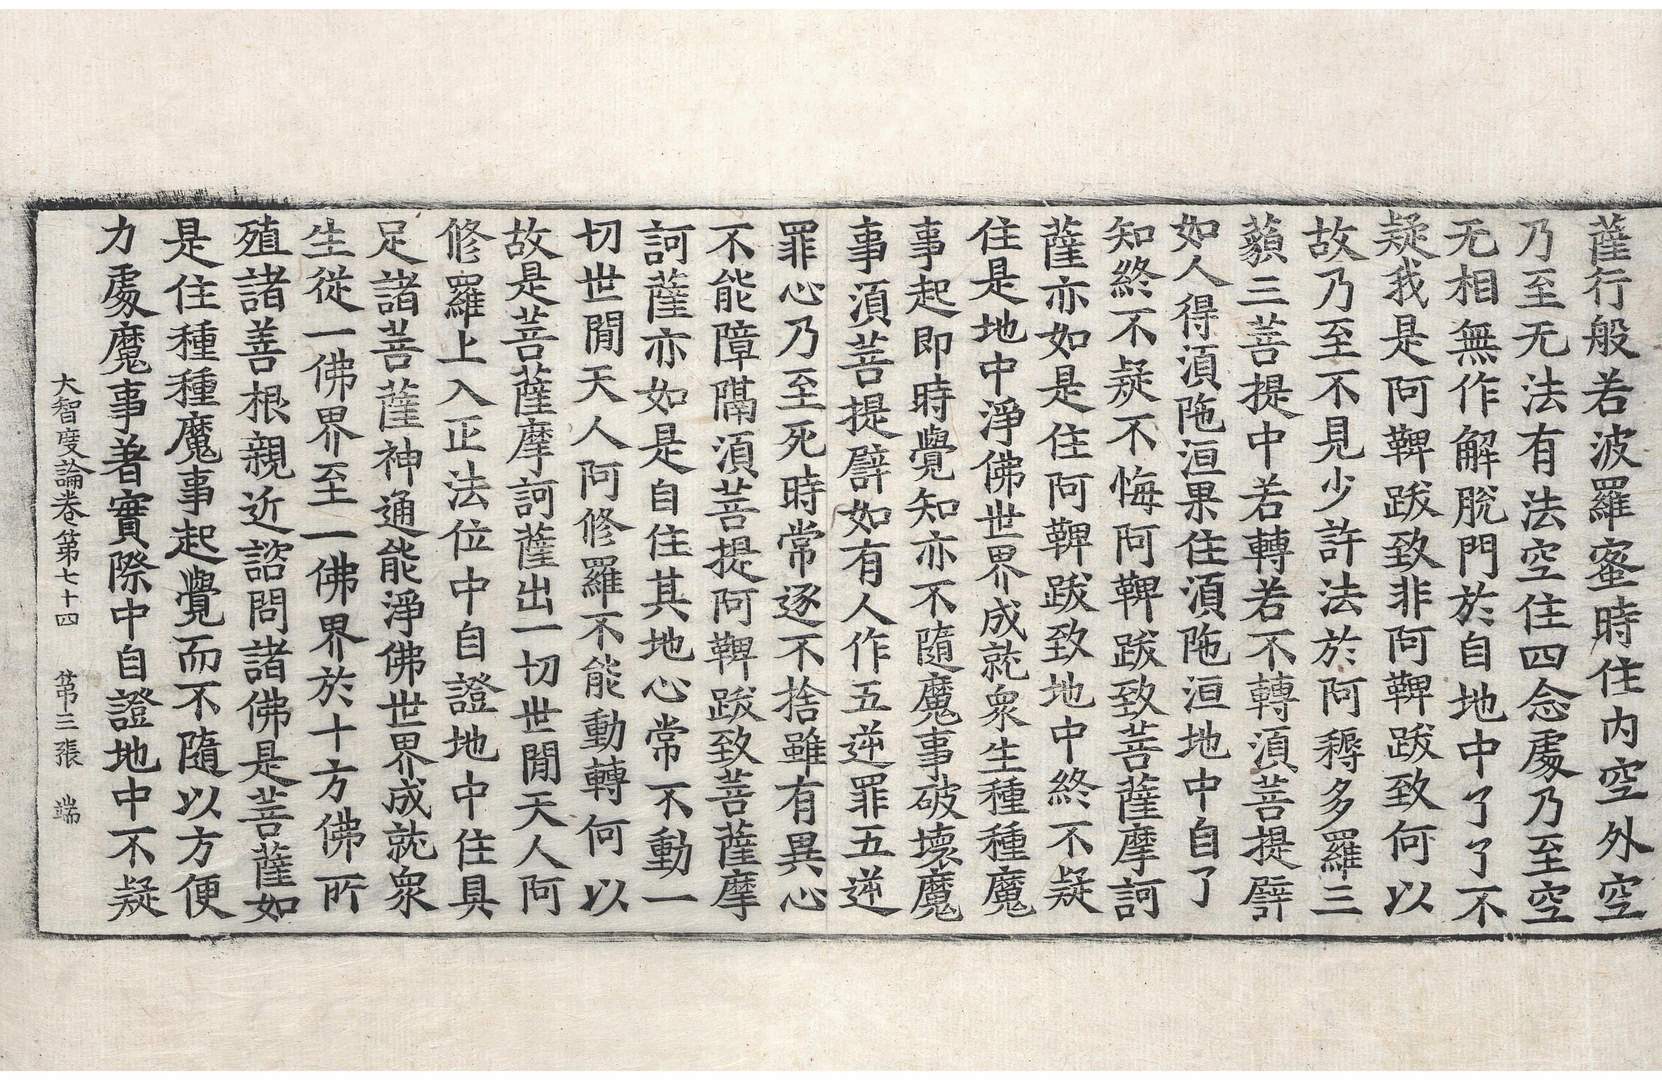 薩行般若波羅蜜時住内空外空
乃至无法有法空住四念處乃至空
无相無作解脫門於自地中了了不
疑我是阿鞞跋致非阿鞞跋致何以
故乃至不見少許法於阿耨多羅三
藐三菩提中若轉若不轉湏菩提譬
如人得湏陁洹果住湏陁洹地中自了
知終不疑不悔阿鞞跋致菩薩摩訶
薩亦如是住阿鞞跋致地中終不疑
住是地中淨佛世界成就衆生種種魔
事起即時覺知亦不隨魔事破壞魔
事湏菩提譬如有人作五逆罪五逆
罪心乃至死時常逐不捨雖有異心
不能障隔湏菩提阿鞞跋致菩薩摩
訶薩亦如是自住其地心常不動一
切世閒天人阿修羅不能動轉何以
故是菩薩摩訶薩出一切世閒天人阿
修羅上入正法位中自證地中住具
足諸菩薩神通能淨佛世界成就衆
生從一佛界至一佛界於十方佛所
殖諸善根親近諮問諸佛是菩薩如
是住種種魔事起覺而不隨以方便
力處魔事著實際中自證地中不疑
大智度論卷第七十四 第三張 端